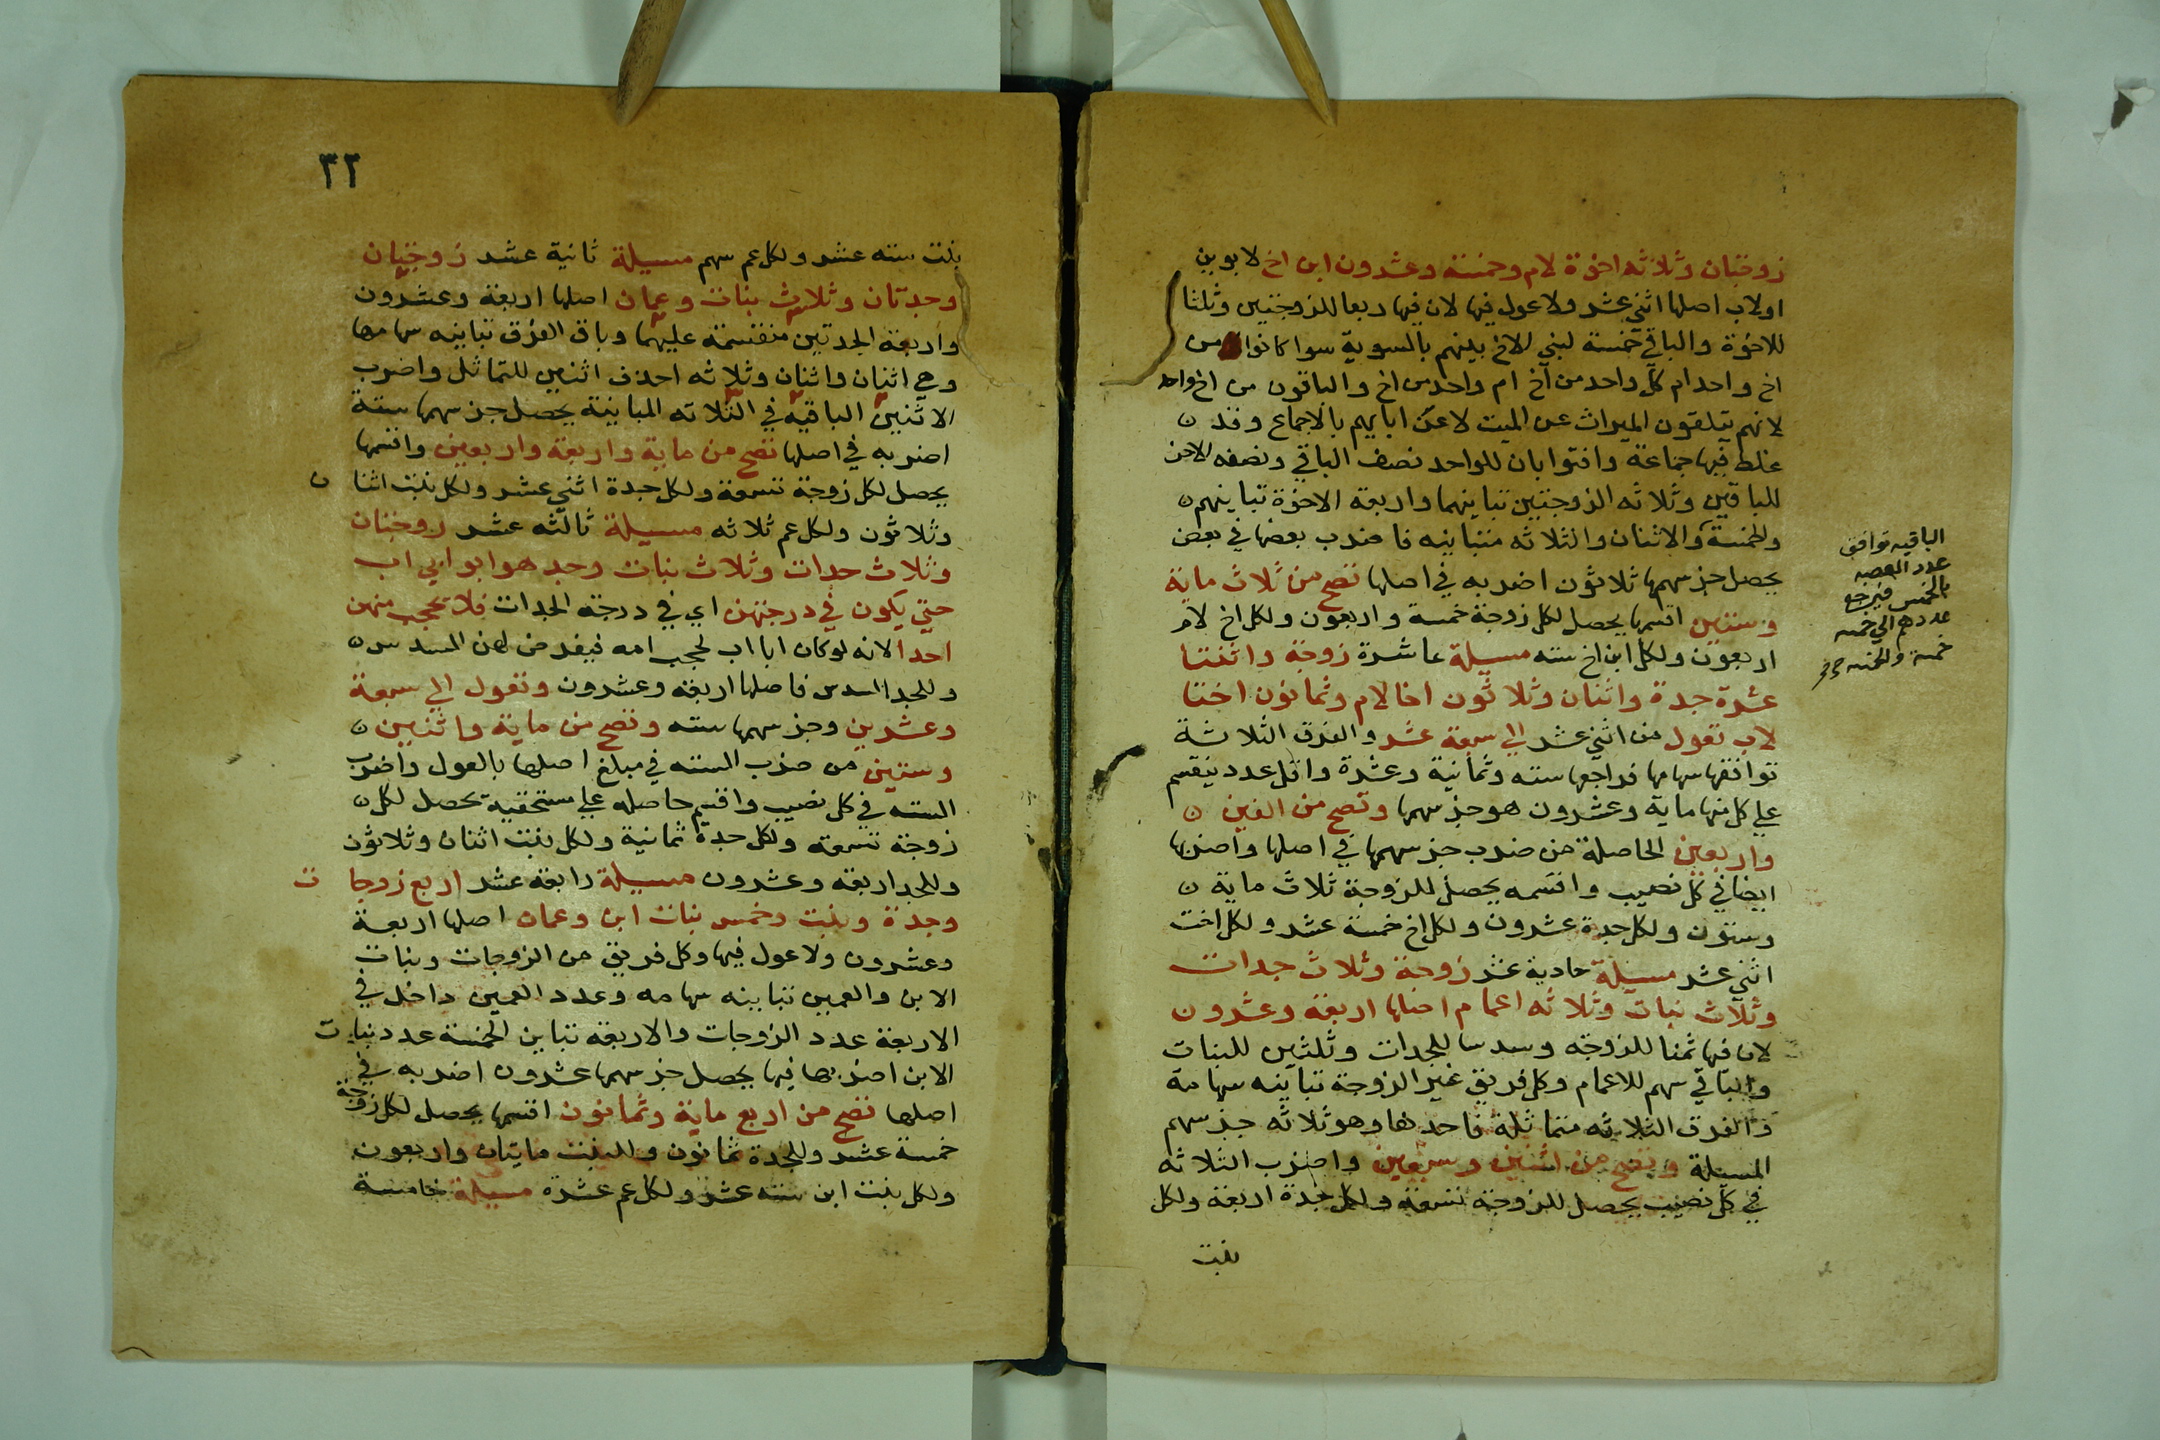 زوجتان وثلاثه اخوة لام وخمسة وعشرون ابن اخ لابوين
اولاب اصلها اثني عشر ولا عول فيها لان فيها ربعا للزوجتين وثلثا
للاخوة والباقي خمسة لبني الاخ بينهم بالسوية سوا كانوا من
اخ واحد ام كل واحد من اخ ام واحد من اخ والباقون من اخ واحد
لانهم يتلقون الميراث عن الميت لا عن ابايهم بالاجماع وقد
غلط فيها جماعة وافتوا بان للواحد نصف الباقي ونصفه الاخر
للباقين وثلاثه الزوجتين تباينهما واربعه الاخوة تباينهم
والخمسة والاثنان والثلاثه متباينه فاضرب بعضها في بعض
يحصل جز سهمها ثلاثون اضربه في اصلها تصح من ثلاث ماية
وستين اقسمها يحصل لكل زوجة خمسة واربعون ولكل اخ لام
اربعون ولكل ابن اخ سته مسيلة عاشرة زوجة واثنتا
عشرة جدة واثنان وثلاثون اخا لام وثمانون اختا
لاب تعول من اثني عشر الي سبعة عشر والفرق الثلاثة
توافقها سهامها فراجعها سته وثمانية وعشرة واقل عدد ينقسم
علي كل منها ماية وعشرون هو جز سهمها وتصح من الفين
واربعين الحاصلة من ضرب جز سهمها في اصلها واضربها
ايضا في كل نصيب واقسمه يحصل للزوجة ثلاث ماية
وستون ولكل جدة عشرون ولكل اخ خمسة عشر ولكل اخت
اثني عشر مسيلة حادية عشر زوجة وثلاث جدات
وثلاث بنات وثلاثه اعمام اصلها اربعة وعشرون
لان فيها ثمنا للزوجة وسدسا للجدات وثلثين للبنات
والباقي سهم للاعمام وكل فريق غير الزوجة تباينه سهامه
والفرق الثلاثه متماثلة فاحدها وهو ثلاثه جز سهم
المسيلة وتصح من اثنين وسبعين واضرب الثلاثه
في كل نصيب يحصل للزوجة تسعة ولكل جدة اربعة ولكل
بنت
الباقيه توافق
عدد العصبه
بالخمس فيرجع
عددهم الي خمسه
خمسة والخمسه
٣٢
بنت سته عشر ولكل عم سهم مسيلة ثانية عشر زوجتان
وجدتان وثلاث بنات وعمان اصلها اربعة وعشرون
واربعة الجدتين منقسمة عليهما وباق الفرق تباينه سهامها
وهي اثنان واثنان وثلاثه احذف اثنين للتماثل واضرب
الاثنين الباقيه في الثلاثه المباينة يحصل جز سهمها ستة
اضربه في اصلها تصح من ماية واربعة واربعين واقسمها
يحصل لكل زوجة تسعة ولكل جدة اثني عشر ولكل بنت اثنا ن
وثلاثون ولكل عم ثلاثه مسيلة ثالثه عشر زوجتان
وثلاث جدات وثلاث بنات وجد هو ابو ابي اب
حتي يكون في درجتهن اي في درجة الجدات فلا يحجب منهن
احدا لانه لو كان ابا اب لحجب امه فيفرض لهن السدس
وللجد السدس فاصلها اربعه وعشرون وتعول الي سبعة
وعشرين وجز سهمها سته وتصح من ماية واثنين
وستين من ضرب السته في مبلغ اصلها بالعول واضرب
السته في كل نصيب واقسم حاصله علي مستحقيه يحصل لكل
زوجة تسعة ولكل جدة ثمانية ولكل بنت اثنان وثلاثون
وللجد اربعه وعشرون مسيلة رابعة عشر اربع زوجا ت
وجدة وبنت وخمس بنات ابن وعمان اصلها اربعة
وعشرون ولا عول فيها وكل فريق من الزوجات وبنات
الابن والعمين تباينه سهامه وعدد العمين داخل في
الاربعة عدد الزوجات والاربعه تباين الخمسة عدد بنات
الابن اضربها فيها يحصل جز سهمها عشرون اضربه في
اصلها تصح من اربع ماية وثمانون اقسمها يحصل لكل زوجة
خمسة عشر وللجدة ثمانون وللبنت مايتان واربعون
ولكل بنت ابن سته عشر ولكل عم عشرة مسيلة خامسة